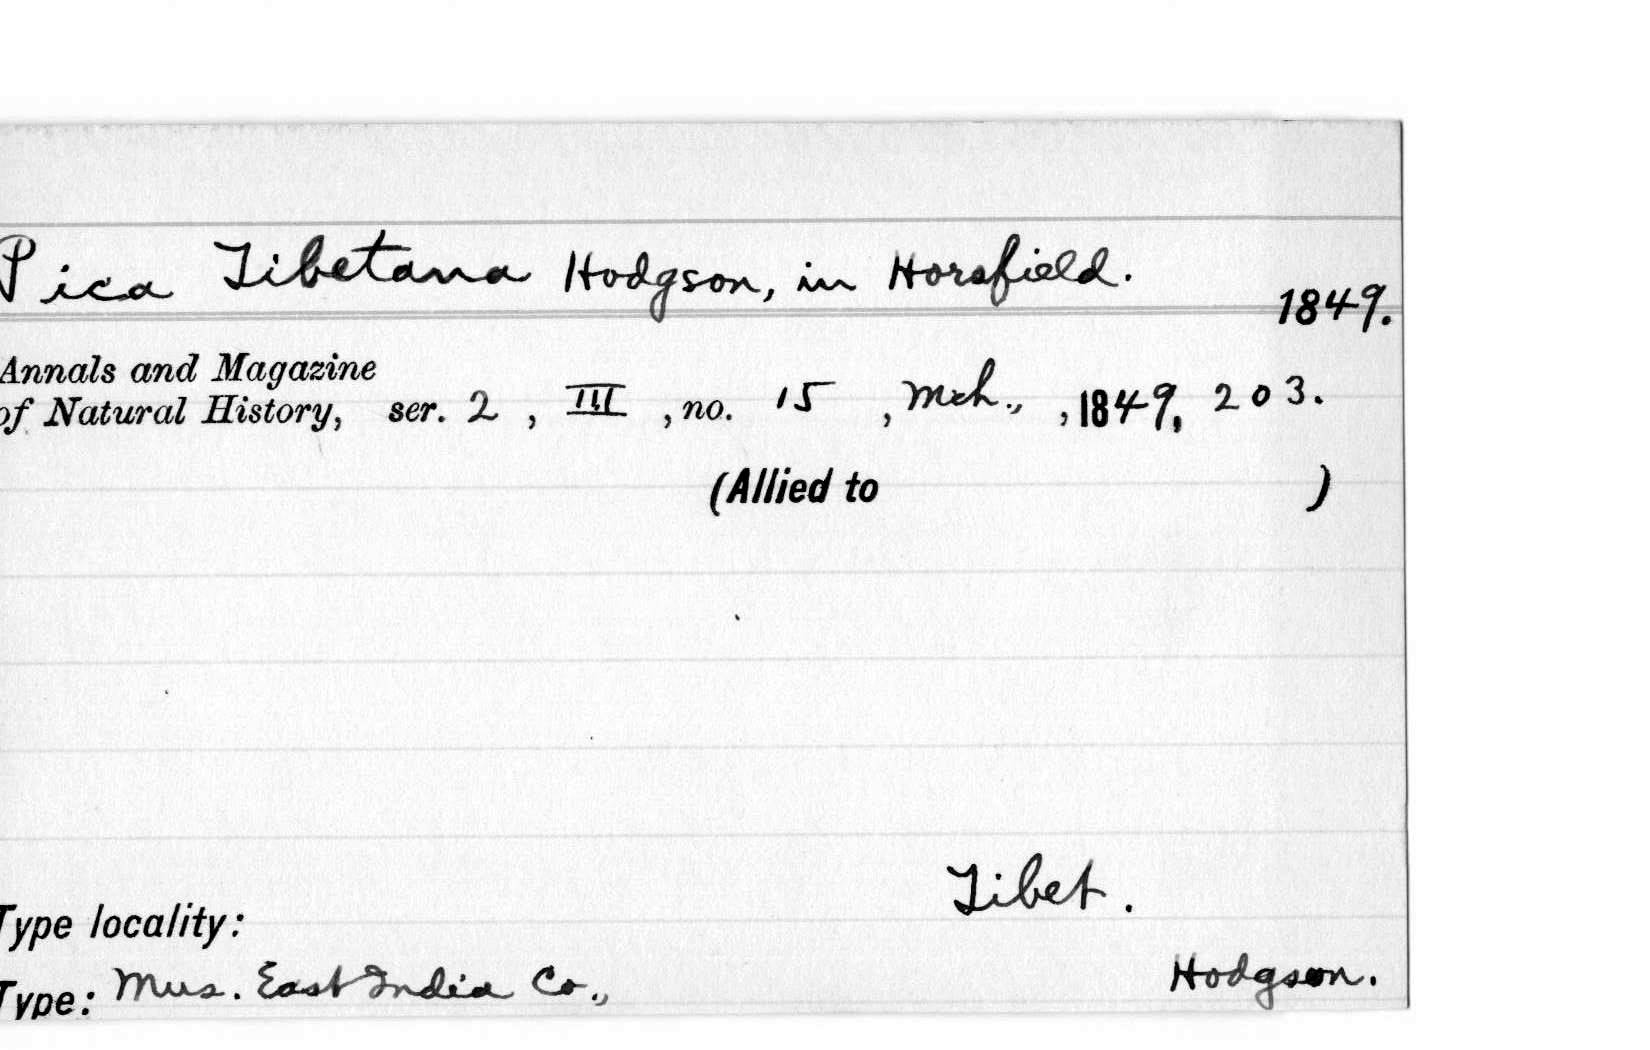 Pica Tibetana Hodgson, in Horsfield.
1849.
Annals and Magazine
of Natural History, ser. 2, III, no. 15, Mch., , 1849, 203.
(Allied to )
Tibet.
Type locality:
Type: Mus. East India Co., Hodgson.